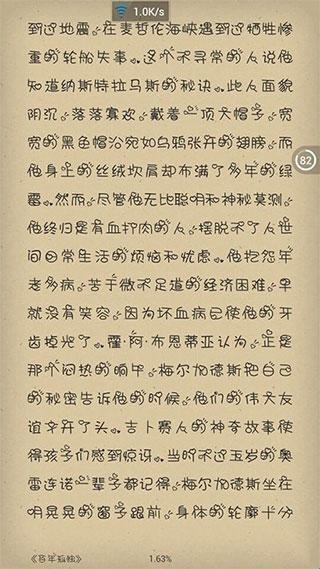 1.0K/s
到过地震。在麦哲伦海峡遇到过牺牲惨
重的轮船失事。这个不寻常的人说他
知道纳斯特拉马斯的秘诀。此人面貌
阴沉。落落寡欢。戴着一顶大帽子。宽
宽的黑色帽沿宛如乌鸦张开的翅膀。而
他身上的丝绒坎肩却布满了多年的绿
霉。然而。尽管他无比聪明和神秘莫测。
他终归是有血打肉的人。摆脱不了人世
间日常生活的烦恼和忧虑。他抱怨年
老多病。苦于微不足道的经济困难。早
就没有笑容。因为坏血病已使他的牙
齿掉光了。霍·阿·布恩蒂亚认为。正是
那个闷热的晌午。梅尔加德斯把自己
的秘密告诉他的时候。他们的伟大友
谊才开了头。吉卜赛人的神奇故事使
得孩子们感到惊讶。当时不过五岁的奥
雷连诺一辈子都记得。梅尔加德斯坐在
明晃晃的窗子跟前。身体的轮廓十分
82
《百年孤独》 1.63%